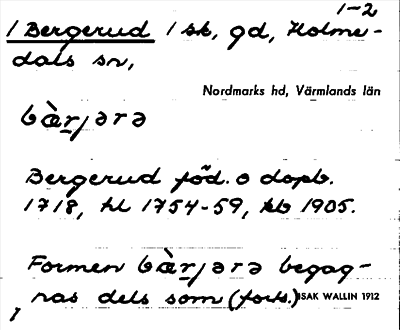 1-2
1 Bergerud 1 sk, gd, Holme-
dals sn,
Nordmarks hd, Värmlands län
bàrjərə
Bergerud föd. o dopb.
1718, hl 1754-59, kb 1905.
Formen bàrjərə begag-
nas dels som (forts.) ISAK WALLIN 1912
1